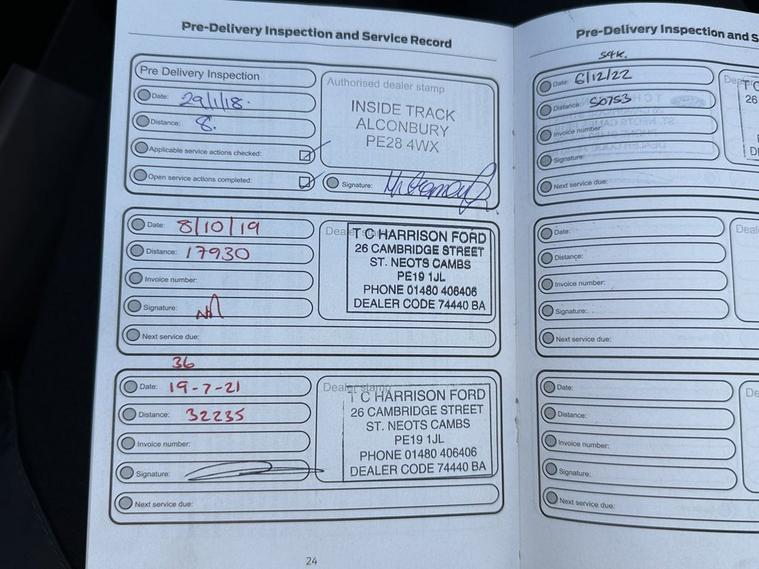 Pre-Delivery Inspection and Service Record
Pre Delivery Inspection
Date: 29/1/18.
Distance: 8.
Applicable service actions checked:
Open service actions completed:
Authorised dealer stamp
INSIDE TRACK
ALCONBURY
PE28 4WX
Signature:
Date: 8/10/19
Distance: 17930
Invoice number:
Signature:
Next service due:
Dealer stamp
T C HARRISON FORD
26 CAMBRIDGE STREET
ST. NEOTS CAMBS
PE19 1JL
PHONE 01480 406406
DEALER CODE 74440 BA
36
Date: 19-7-21
Distance: 32235
Invoice number:
Signature:
Next service due:
Dealer stamp
T C HARRISON FORD
26 CAMBRIDGE STREET
ST. NEOTS CAMBS
PE19 1JL
PHONE 01480 406406
DEALER CODE 74440 BA
24
Pre-Delivery Inspection and S
Date: 6/12/22
Distance: 50753
Invoice number:
Signature:
Next service due:
T C
26
Date:
Distance:
Invoice number:
Signature:
Next service due:
Deal
Date:
Distance:
Invoice number:
Signature:
Next service due:
De